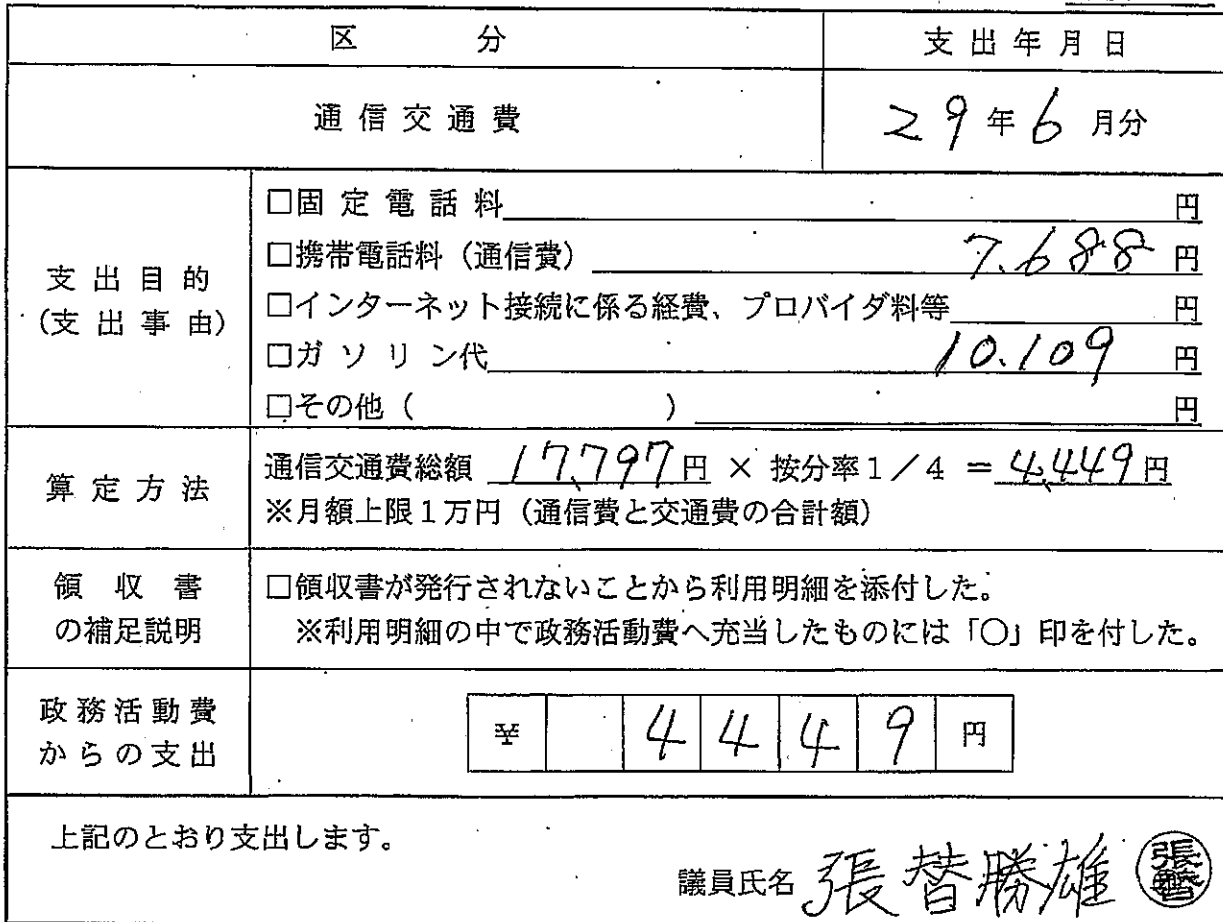 区 分 支出年月日
通信交通費 29年6月分
支出目的
(支出事由)
□固定電話料 円
□携帯電話料（通信費） 7.688円
□インターネット接続に係る経費、プロバイダ料等 円
□ガソリン代 10.109 円
□その他（ ） 円
算定方法
通信交通費総額 17,797円 × 按分率1／4 ＝ 4,449円
※月額上限1万円（通信費と交通費の合計額）
領収書
の補足説明
□領収書が発行されないことから利用明細を添付した。
※利用明細の中で政務活動費へ充当したものには「〇」印を付した。
政務活動費
からの支出
¥ 4449円
上記のとおり支出します。
議員氏名 張替勝雄 張替